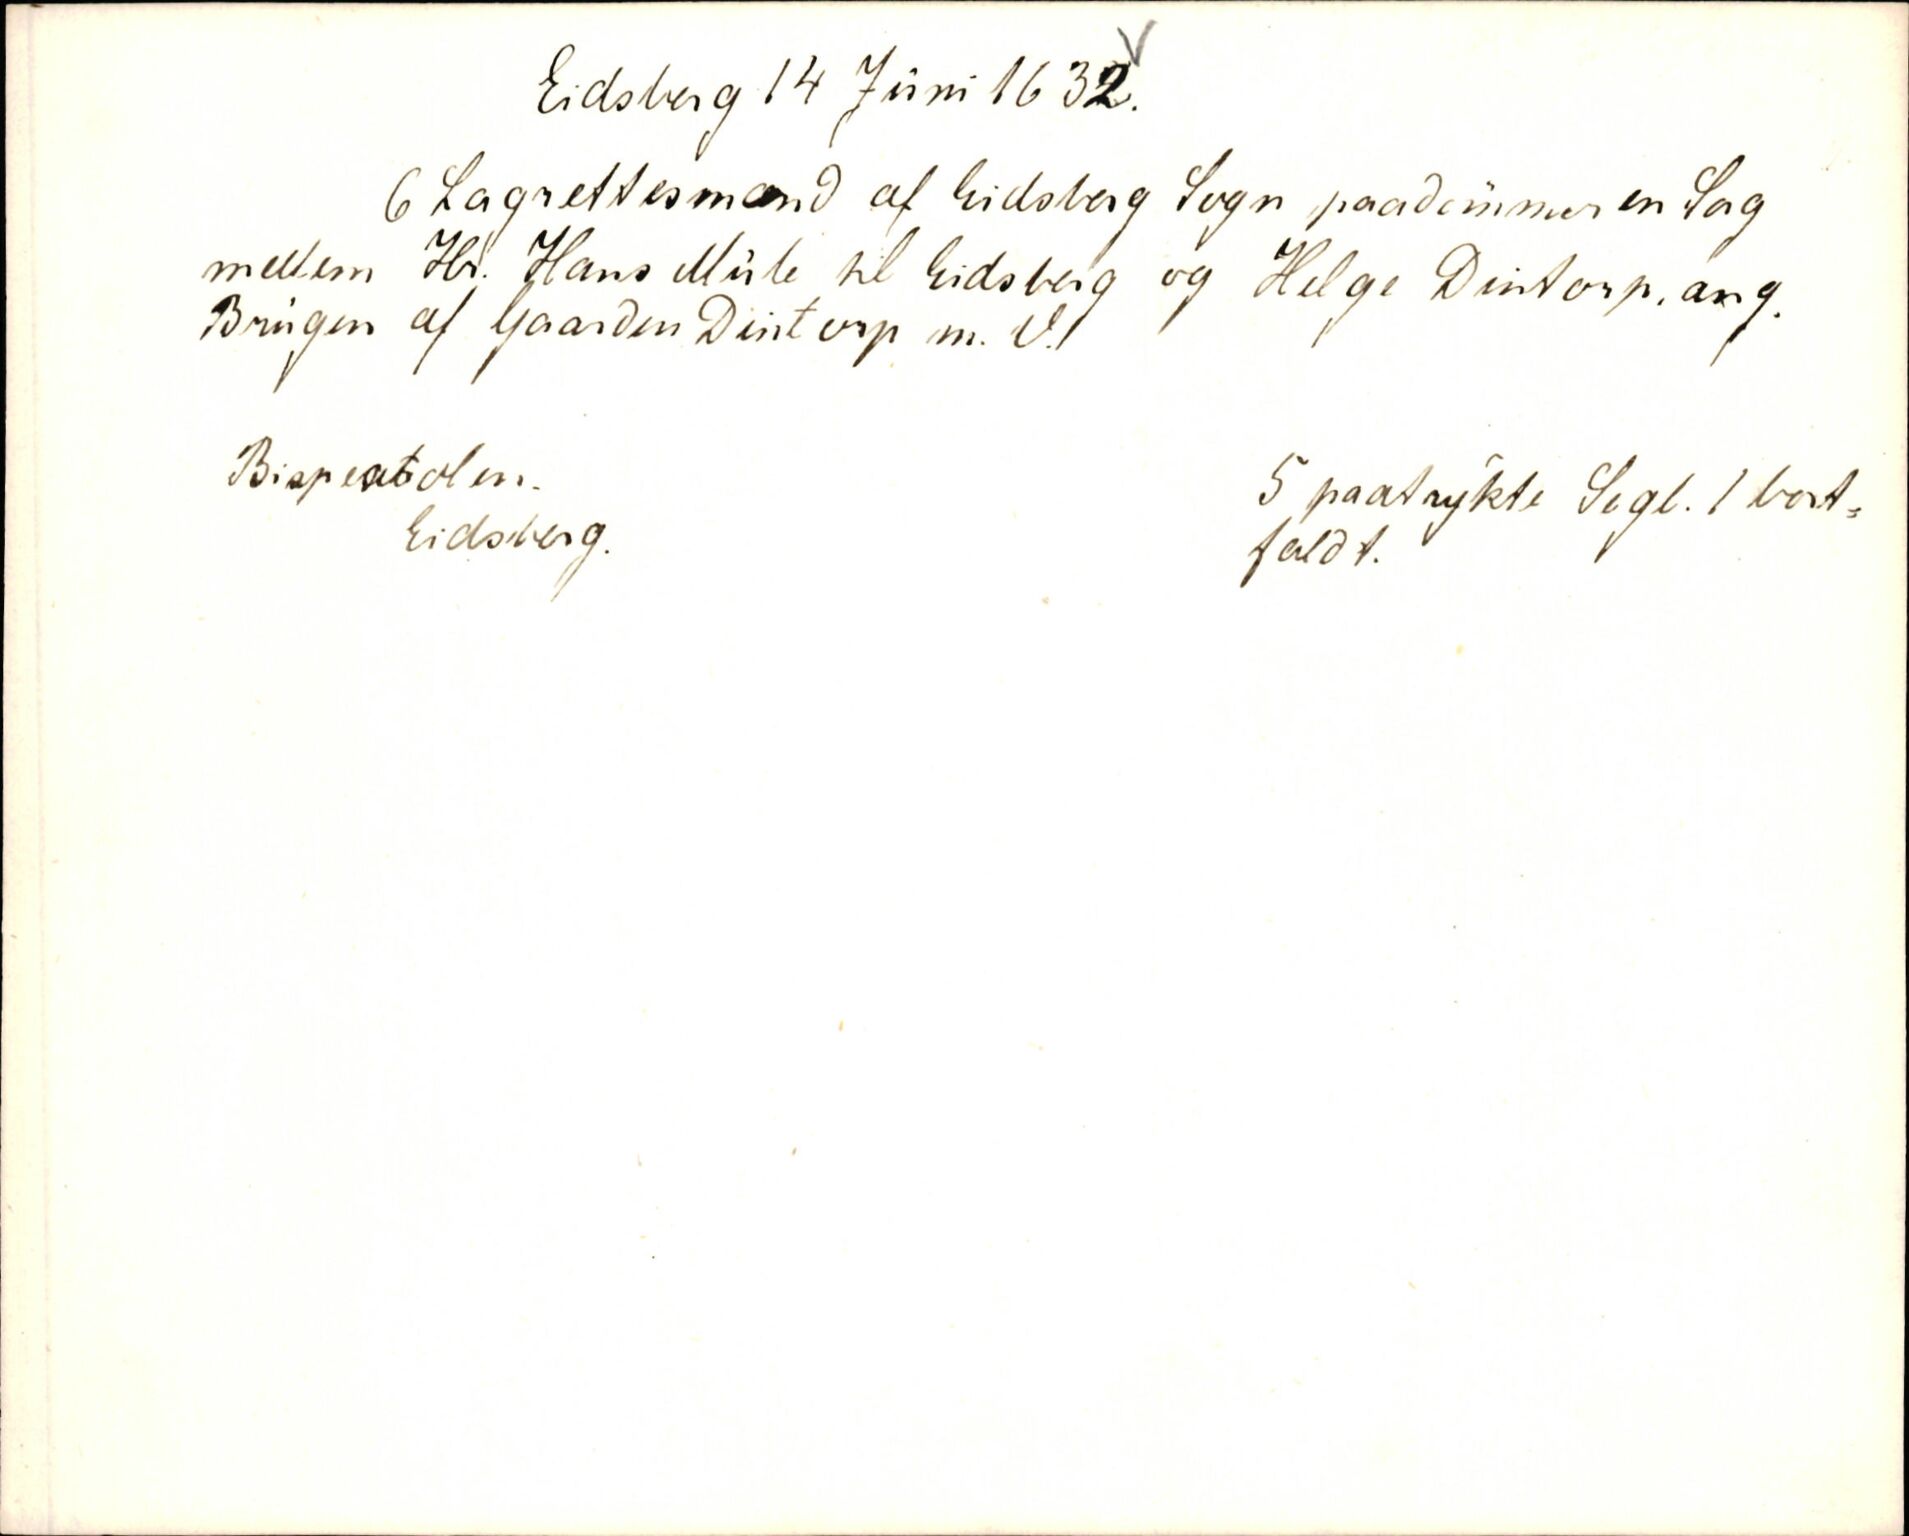 Eidsberg 14 Juni 1632.
6 Lagrettesmænd af Eidsberg Sogn paadömmer en Sag
mellem Hr. Hans Mule til Eidsberg og Helge Dintorp, ang.
Brugen af Gaarden Dintorp m. V.
Bispestolen.
Eidsberg.
5 paatrykte Segl. 1 bort-
faldt.